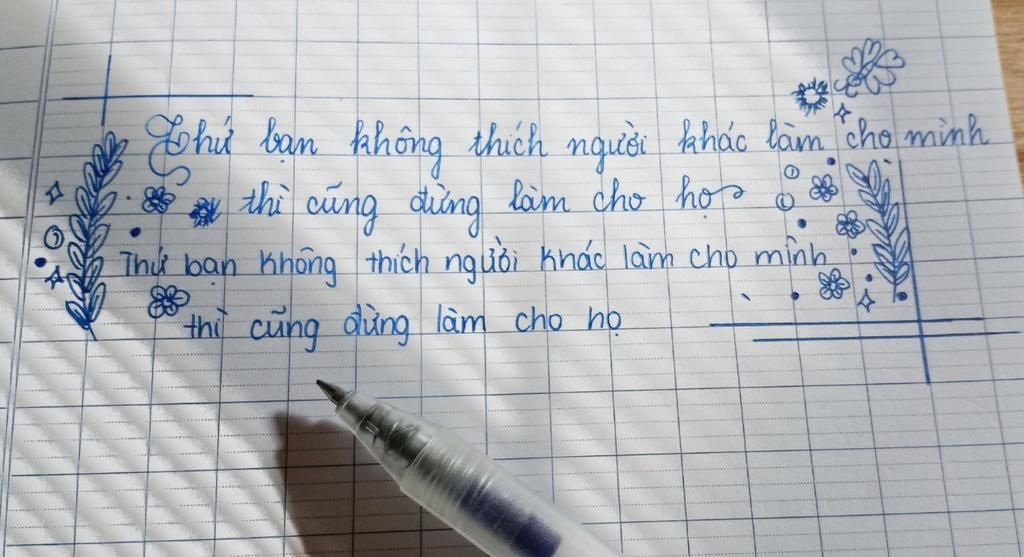 Thứ bạn không thích người khác làm cho mình
thì cũng đừng làm cho họ
Thứ bạn không thích người khác làm cho mình
thì cũng đừng làm cho họ